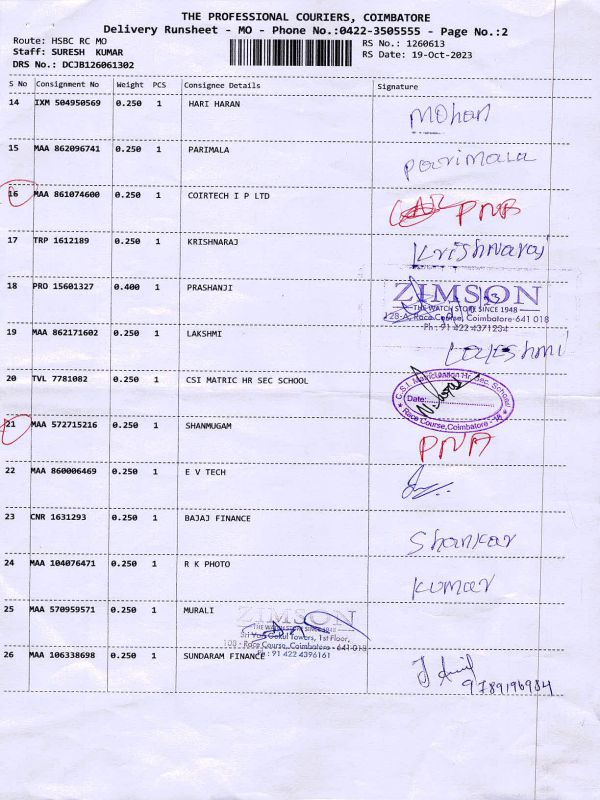 THE PROFESSIONAL COURIERS, COIMBATORE
Delivery Runsheet - MO - Phone No.:0422-3505555 - Page No.:2
Route: HSBC RC MO
Staff: SURESH KUMAR
DRS No.: DCJB126061302
RS No.: 1260613
RS Date: 19-Oct-2023
S No Consignment No Weight PCS Consignee Details Signature
14 IXM 504950569 0.250 1 HARI HARAN Mohan
15 MAA 862096741 0.250 1 PARIMALA Parimala
16 MAA 861074600 0.250 1 COIRTECH I P LTD PNB
17 TRP 1612189 0.250 1 KRISHNARAJ Krishnaraj
18 PRO 15601327 0.400 1 PRASHANJI
ZIMSON
THE WATCH STORE SINCE 1948
128-A, Race Course, Coimbatore-641 018
Ph : 91 422 4371234
19 MAA 862171602 0.250 1 LAKSHMI
20 TVL 7781082 0.250 1 CSI MATRIC HR SEC SCHOOL
C.S.I. Matriculation Hr. Sec. School
Date:
Race Course, Coimbatore - 18
21 MAA 572715216 0.250 1 SHANMUGAM PNA
22 MAA 860006469 0.250 1 E V TECH
23 CNR 1631293 0.250 1 BAJAJ FINANCE Shankar
24 MAA 104076471 0.250 1 R K PHOTO Kumar
25 MAA 570959571 0.250 1 MURALI
ZIMSON
THE WATCH STORE SINCE 1948
Towers, 1st Floor,
Race Course, Coimbatore - 641 018
Ph : 91 422 4396161
26 MAA 106338698 0.250 1 SUNDARAM FINANCE
9789196984